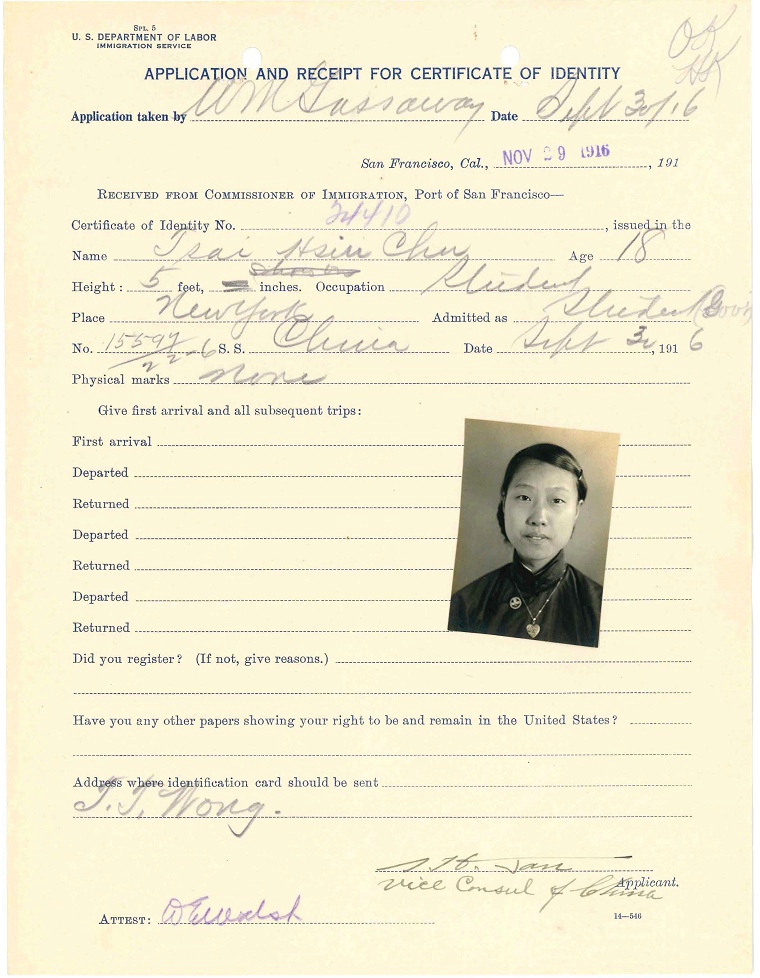 SPL. 5
U. S. DEPARTMENT OF LABOR
IMMIGRATION SERVICE
OK
APPLICATION AND RECEIPT FOR CERTIFICATE OF IDENTITY
Application taken by WM Gassaway Date Sept 30/16
San Francisco, Cal., NOV 29 1916, 191
RECEIVED FROM COMMISSIONER OF IMMIGRATION, Port of San Francisco—
Certificate of Identity No. 24410, issued in the
Name Tsai Hsiu Chu Age 18
Height: 5 feet, inches. Occupation Student
Place New York Admitted as Student (Gov't
No. 15597/2-6 S. S. China Date Sept 30, 1916
Physical marks none
Give first arrival and all subsequent trips:
First arrival
Departed
Returned
Departed
Returned
Departed
Returned
Did you register? (If not, give reasons.)
Have you any other papers showing your right to be and remain in the United States?
Address where identification card should be sent
T. T. Wong.
Vice Consul of China
Applicant.
ATTEST: WEWalsh
14—546